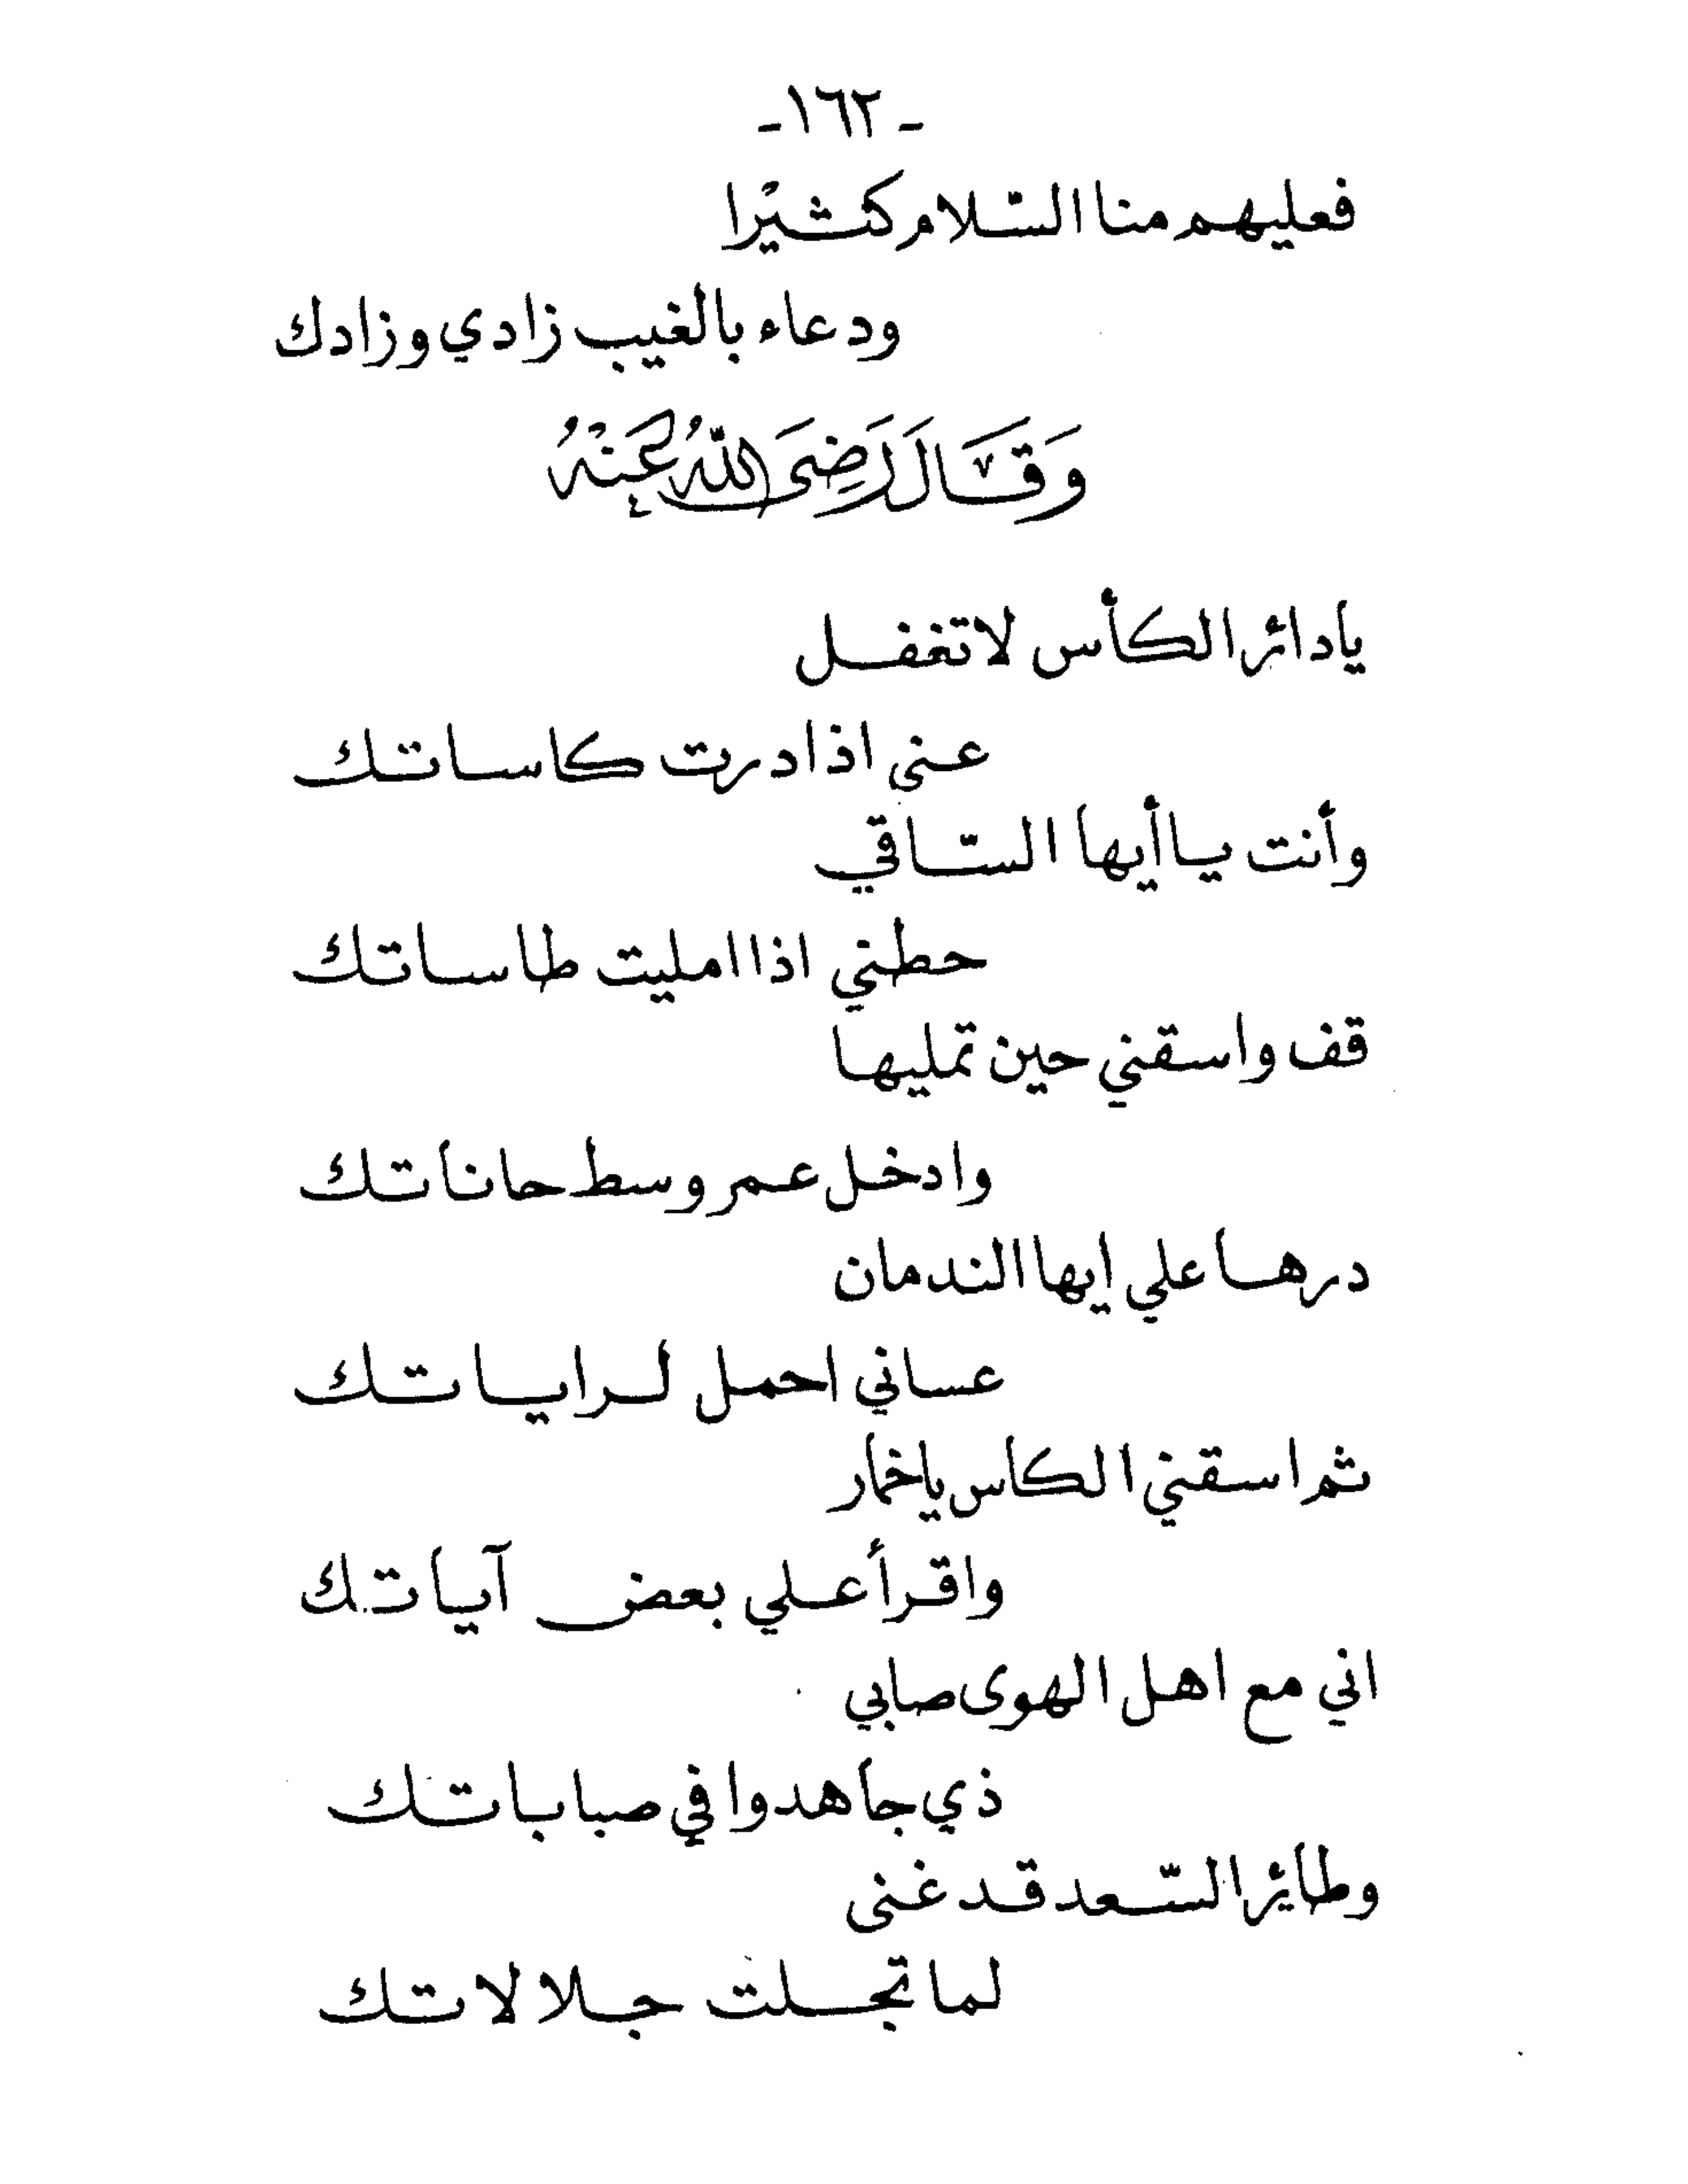 - ١٦٢ -
فعليهم منا السّلام كثيْرا
ودعاء بالغيب زادي وزادك
وَقَالَ رَضِىَ اللّٰهُ عَنْهُ
يا دائر الكأس لا تغفل
عنى اذا درت كاساتك
وأنت يا أيها السّاقي
حطني اذا امليت طاساتك
قف واسقني حين تمليها
وادخل عمر وسط حاناتك
درها علي ايها الندمان
عساني احمل لراياتك
ثم اسقني الكاس يا خمار
واقرأ علي بعض آياتك
اني مع اهل الهوى صابي
ذي جاهدوا في صباباتك
وطائر السّعد قد غنى
لما تجلت جلالاتك